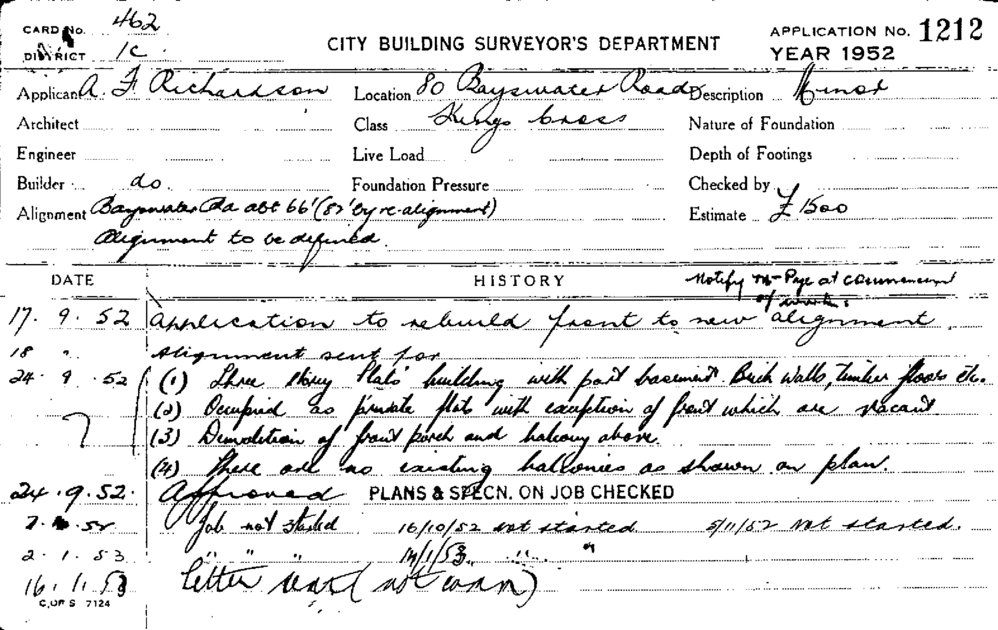 CARD No. 462
DISTRICT 1C.
CITY BUILDING SURVEYOR'S DEPARTMENT
APPLICATION No. 1212
YEAR 1952
Applicant A. F. Richardson Location 80 Bayswater Road Description Minor
Architect Class Kings Cross Nature of Foundation
Engineer Live Load Depth of Footings
Builder do. Foundation Pressure Checked by
Alignment Bayswater Rd abt 66' (82' by re-alignment) Estimate £1500
Alignment to be defined.
DATE HISTORY Notify Mr Page at commencement of work.
17. 9. 52 Application to rebuild front to new alignment.
18 " Alignment sent for
24. 9. 52 (1) Three storey Flats building with part basement. Brick walls, timber floors etc.
(2) Occupied as private flats with exception of front which are vacant
(3) Demolition of front porch and balcony above.
(4) There are no existing balconies as shown on plan.
24. 9. 52. Approved PLANS & SPECN. ON JOB CHECKED
52 Job not started 16/10/52 not started 5/11/52 Not started.
2. 1. 53 " " " /1/53 " "
16. 1. 53 Letter sent (not
C. OF S 7124